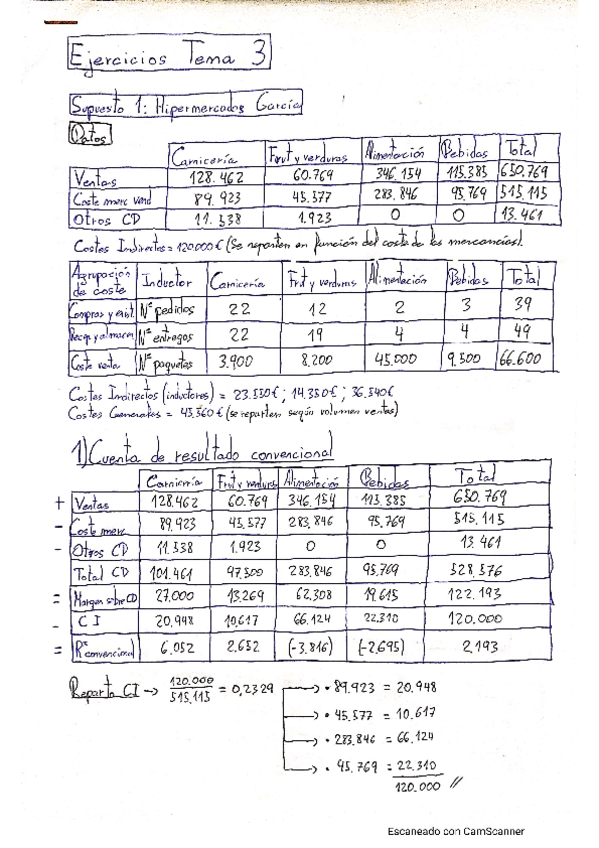 Ejercicios Tema 3
Supuesto 1: Hipermercados García
Datos
Carnicería Frut y verduras Alimentación Bebidas Total
Ventas 128.462 60.769 346.154 115.385 650.769
Coste merc vend 89.923 45.577 283.846 95.769 515.115
Otros CD 11.538 1.923 0 0 13.461
Costes Indirectos = 120.000 € (Se reparten en función del coste de las mercancías).
Agrupación de coste Inductor Carnicería Frut y verduras Alimentación Bebidas Total
Compras y exist. Nº pedidos 22 12 2 3 39
Recep y almacen Nº entregas 22 19 4 4 49
Coste venta Nº paquetes 3.900 8.200 45.000 9.500 66.600
Costes Indirectos (inductores) = 23.550€; 14.350€; 36.540€
Costes Generales = 45.560€ (se reparten según volumen ventas)
1) Cuenta de resultado convencional
Carnicería Frut y verduras Alimentación Bebidas Total
+ Ventas 128.462 60.769 346.154 115.385 650.769
- Coste merc. 89.923 45.577 283.846 95.769 515.115
- Otros CD 11.538 1.923 0 0 13.461
Total CD 101.461 47.500 283.846 95.769 528.576
= Margen sobre CD 27.000 13.269 62.308 19.615 122.193
- C I 20.948 10.617 66.124 22.310 120.000
= Rº convencional 6.052 2.652 (-3.816) (-2.695) 2.193
Reparto CI → 120.000 / 515.115 = 0,2329 → · 89.923 = 20.948
→ · 45.577 = 10.617
→ · 283.846 = 66.124
→ · 45.769 = 22.310
120.000 //
Escaneado con CamScanner